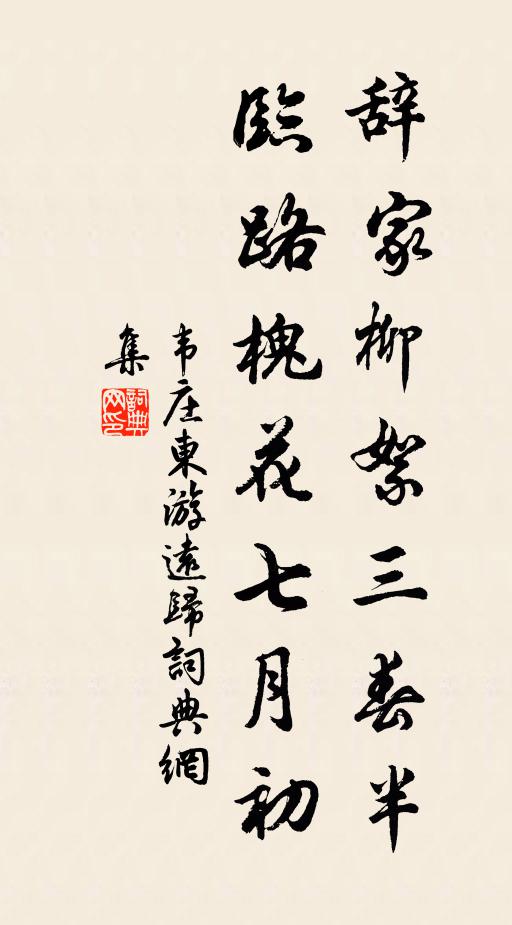 辞家柳絮三春半
臨路槐花七月初
韦庄東游遠歸詞典網
集
詞典网印